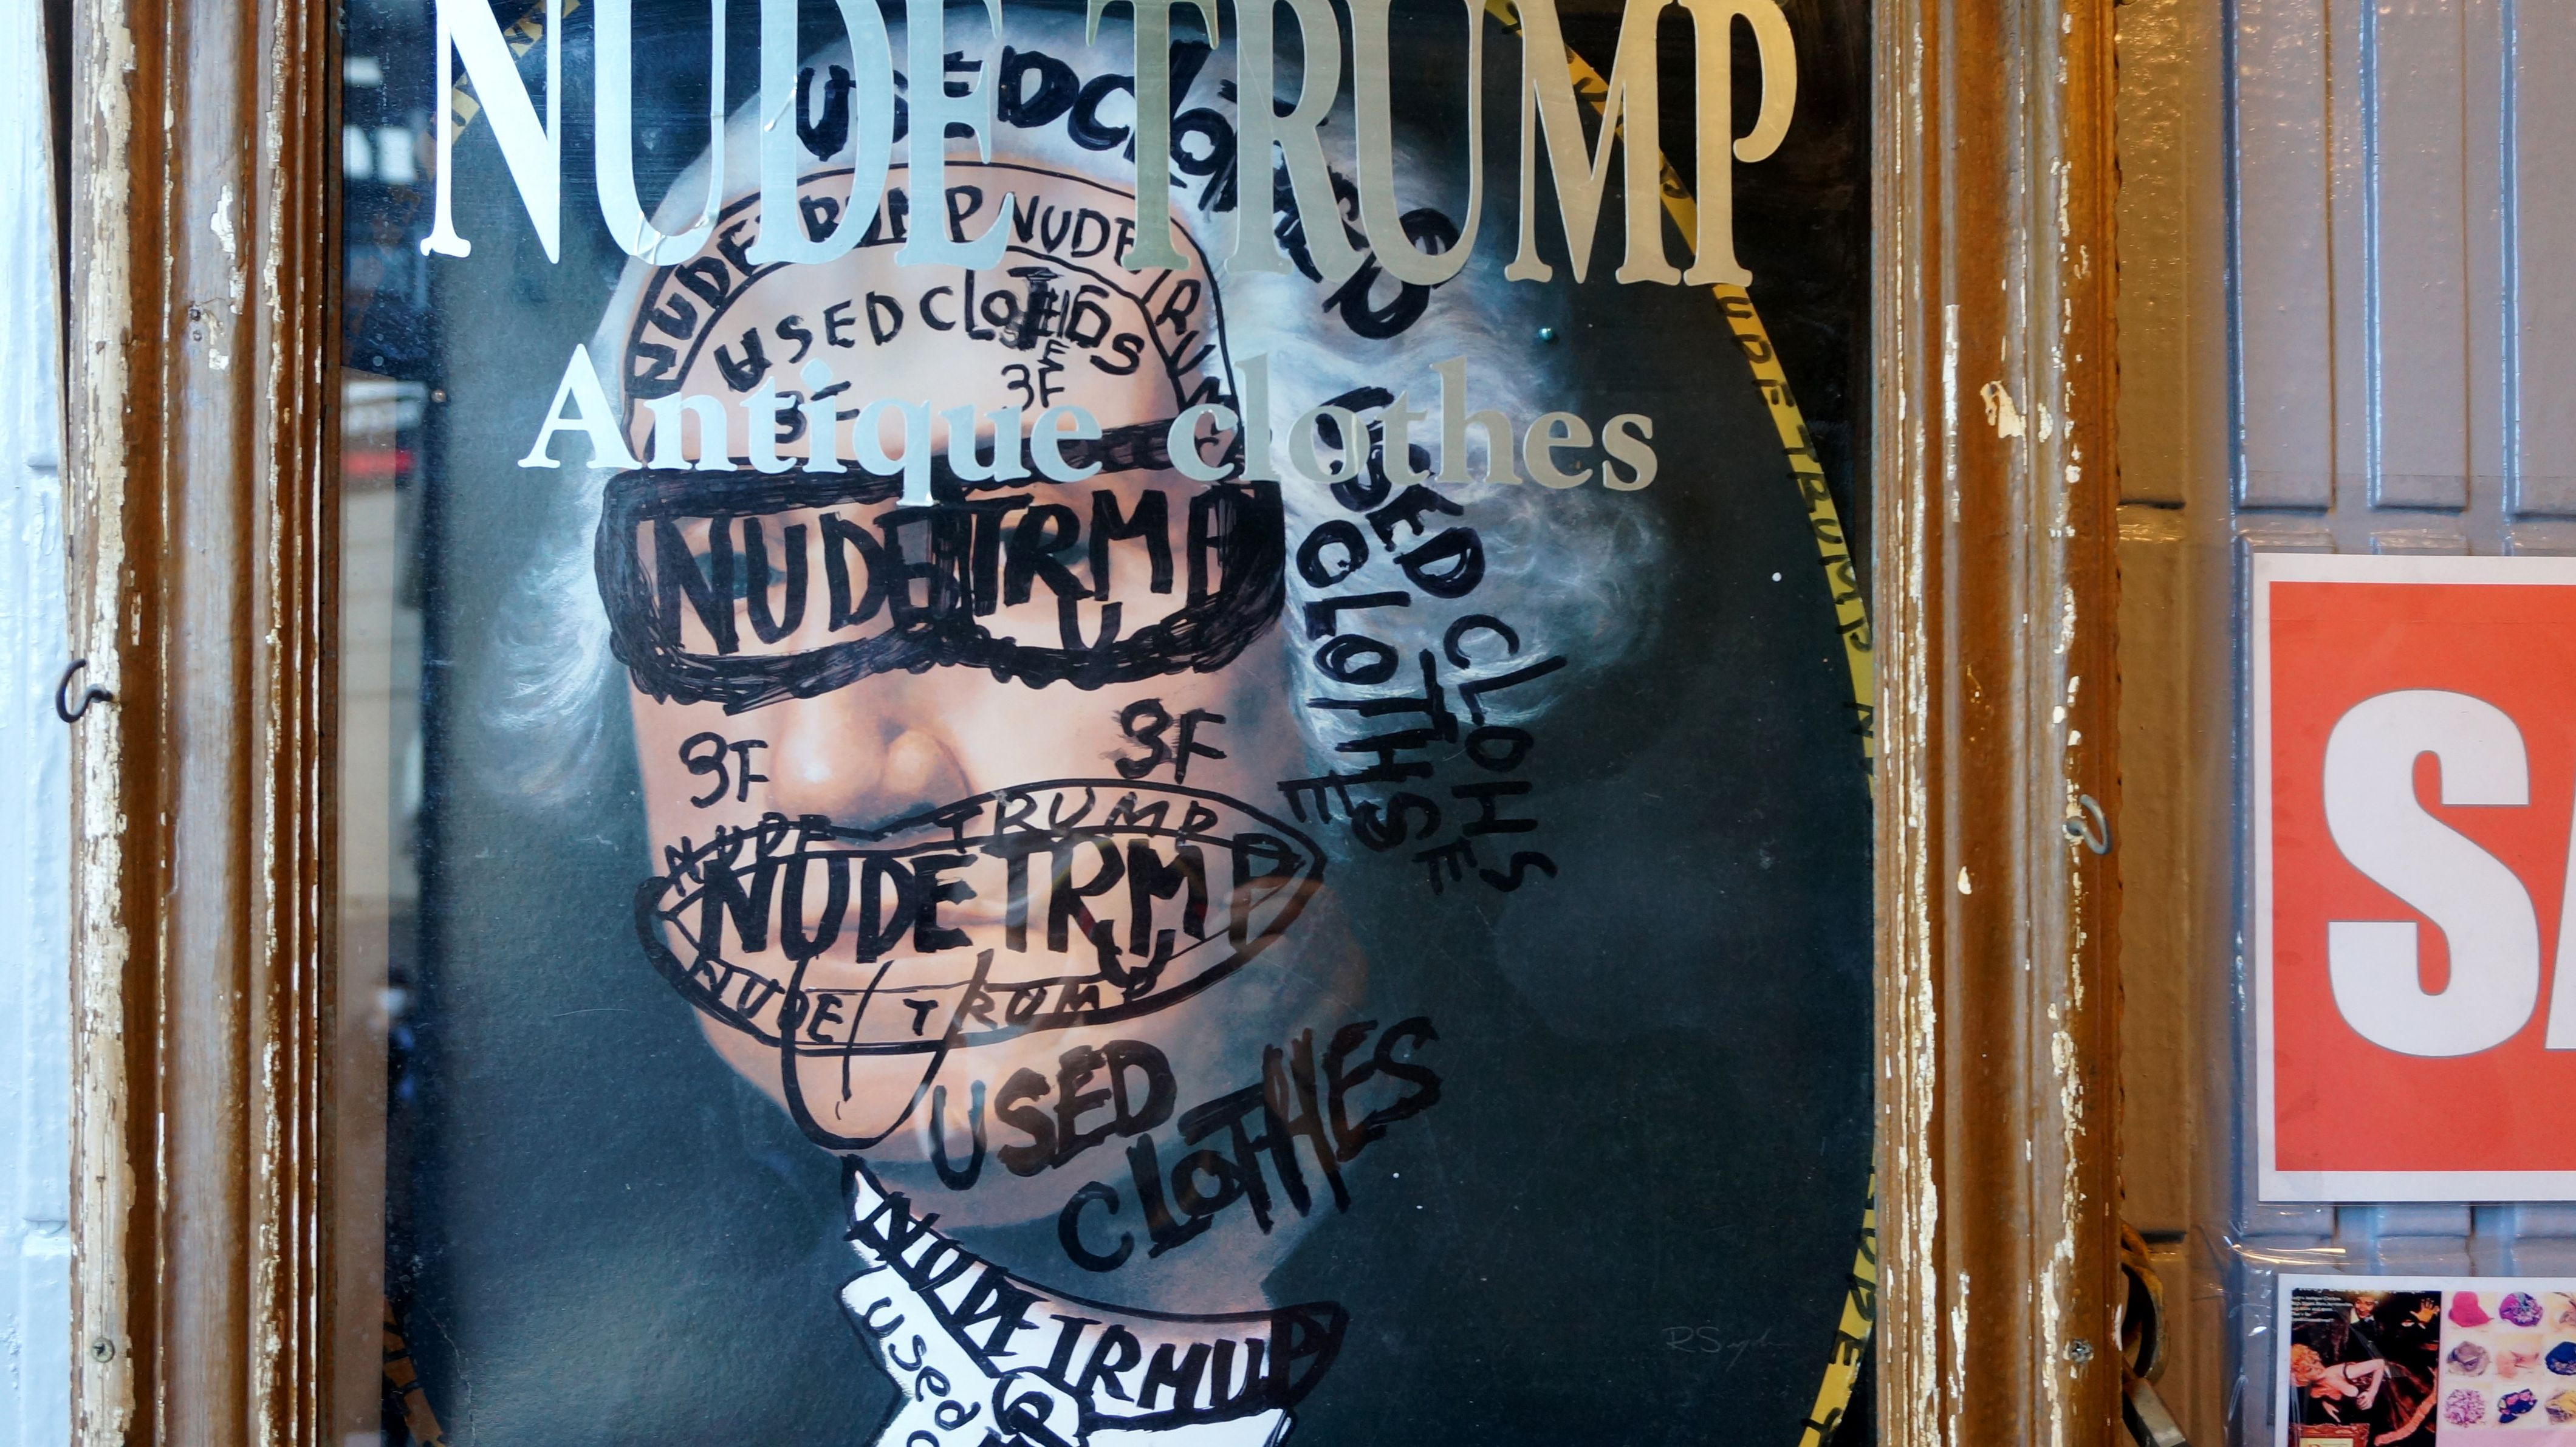 NUDE TRUMP
USED CLOTHS
NUDE TRUMP NUDE TRUMP
USED CLOTHS
3F
3F
Antique clothes
NUDE TRMP
U
USED CLOHS
CLOTHSE
3F
3F
NUDE TRUMP
NUDE TRMP
U
NUDE TRUMP
USED
CLOTHES
NUDE TRMUP
used
NUDE TRUMP
SA